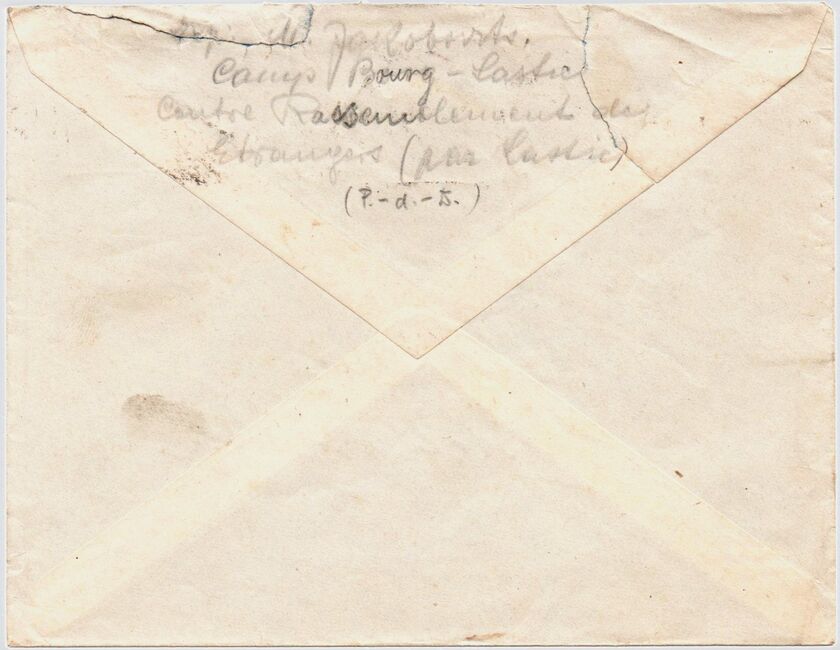 Exp. M. Jakobovits.
Camp Bourg-Lastic
Centre Rassemblement des
Etrangers (par Lastic)
(P.-d.-D.)